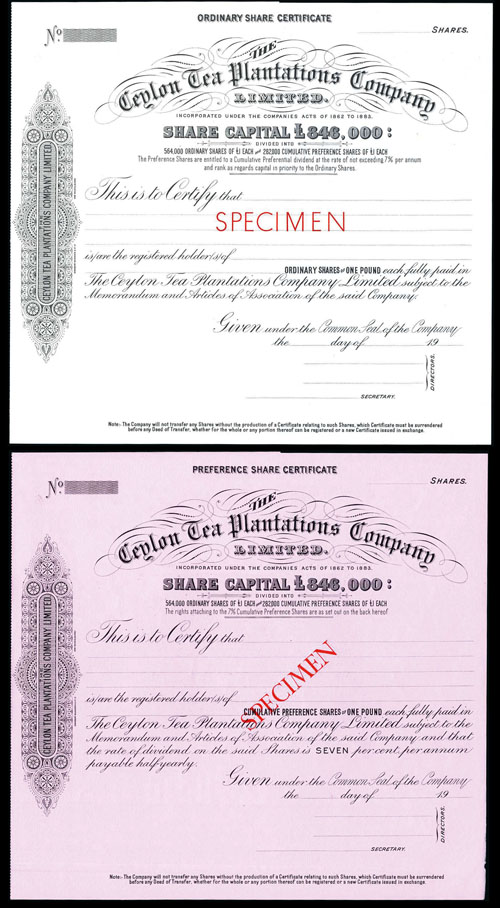 ORDINARY SHARE CERTIFICATE
No.
SHARES.
THE
Ceylon Tea Plantations Company
LIMITED.
INCORPORATED UNDER THE COMPANIES ACTS OF 1862 TO 1883.
SHARE CAPITAL £846,000:
DIVIDED INTO
564,000 ORDINARY SHARES OF £1 EACH AND 282000 CUMULATIVE PREFERENCE SHARES OF £1 EACH
The Preference Shares are entitled to a Cumulative Preferential dividend at the rate of not exceeding 7% per annum
and rank as regards capital in priority to the Ordinary Shares.
CEYLON TEA PLANTATIONS COMPANY LIMITED.
This is to Certify that
SPECIMEN
is/are the registered holder/s/of
ORDINARY SHARES OF ONE POUND each fully paid in
The Ceylon Tea Plantations Company Limited subject to the
Memorandum and Articles of Association of the said Company.
Given under the Common Seal of the Company
the day of 19
DIRECTORS.
SECRETARY.
Note:- The Company will not transfer any Shares without the production of a Certificate relating to such Shares, which Certificate must be surrendered
before any Deed of Transfer, whether for the whole or any portion thereof can be registered or a new Certificate issued in exchange.
PREFERENCE SHARE CERTIFICATE
No.
SHARES.
THE
Ceylon Tea Plantations Company
LIMITED.
INCORPORATED UNDER THE COMPANIES ACTS OF 1862 TO 1883.
SHARE CAPITAL £846,000:
DIVIDED INTO
564,000 ORDINARY SHARES OF £1 EACH AND 282000 CUMULATIVE PREFERENCE SHARES OF £1 EACH
The rights attaching to the 7% Cumulative Preference Shares are as set out on the back hereof
CEYLON TEA PLANTATIONS COMPANY LIMITED.
This is to Certify that
SPECIMEN
is/are the registered holder/s/of
CUMULATIVE PREFERENCE SHARES OF ONE POUND each fully paid in
The Ceylon Tea Plantations Company Limited subject to the
Memorandum and Articles of Association of the said Company and that
the rate of dividend on the said Shares is SEVEN per cent. per annum
payable half-yearly.
Given under the Common Seal of the Company
the day of 19
DIRECTORS.
SECRETARY.
Note:- The Company will not transfer any Shares without the production of a Certificate relating to such Shares, which Certificate must be surrendered
before any Deed of Transfer, whether for the whole or any portion thereof can be registered or a new Certificate issued in exchange.